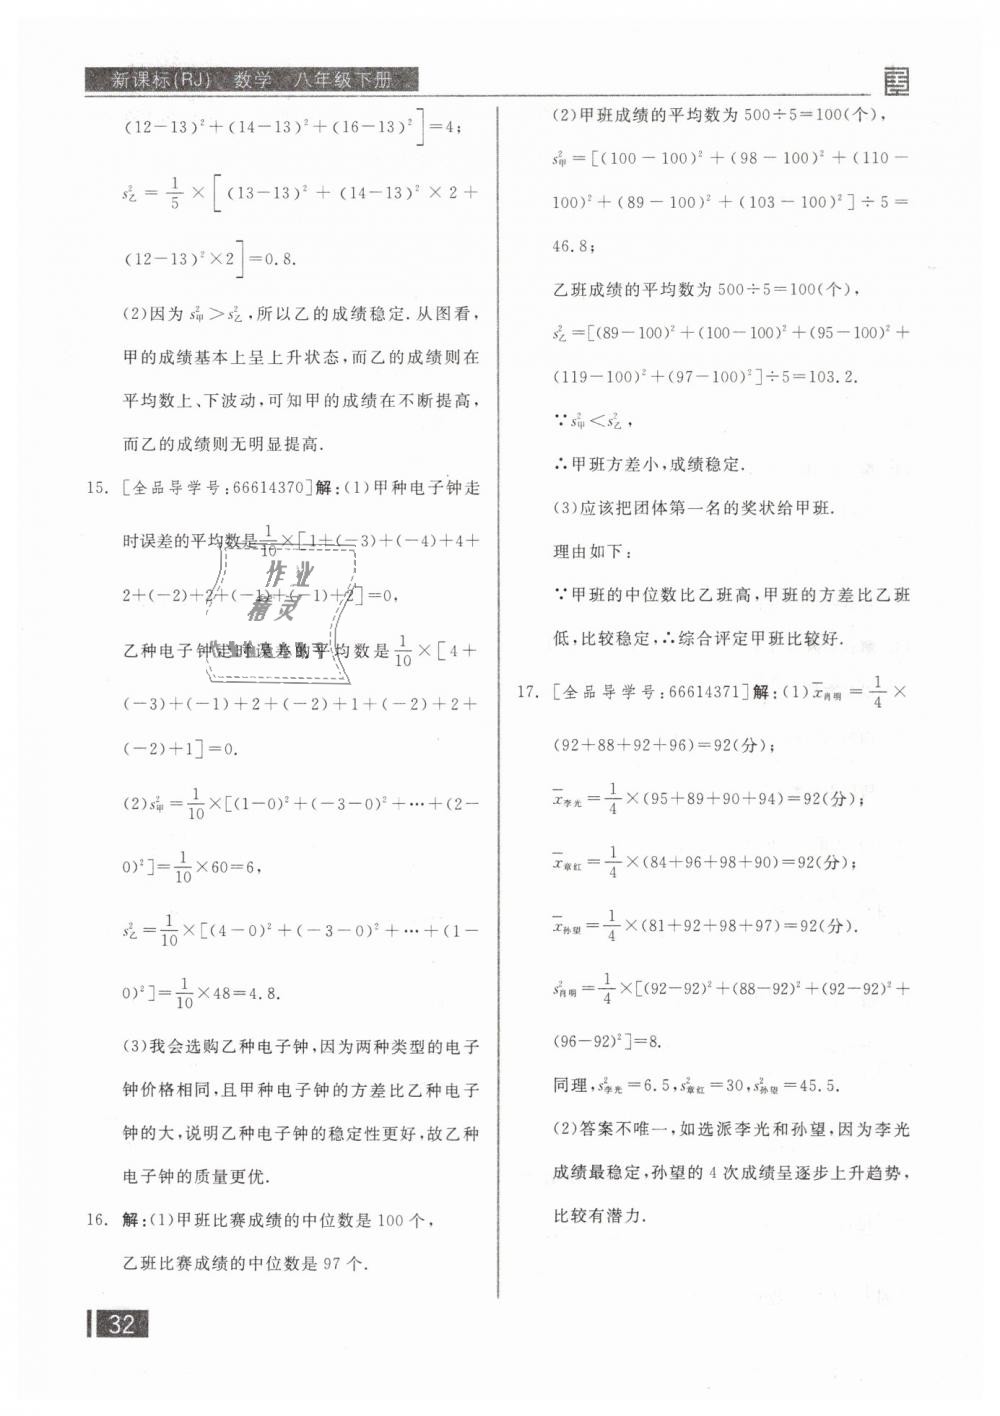 新课标(RJ) 数学 八年级下册
(12-13)²+(14-13)²+(16-13)²]=4;
s²乙=1/5×[(13-13)²+(14-13)²×2+
(12-13)²×2]=0.8.
(2)因为s²甲>s²乙,所以乙的成绩稳定.从图看,
甲的成绩基本上呈上升状态,而乙的成绩则在
平均数上、下波动,可知甲的成绩在不断提高,
而乙的成绩则无明显提高.
15. [全品导学号:66614370]解:(1)甲种电子钟走
时误差的平均数是1/10×[1+(-3)+(-4)+4+
2+(-2)+2+(-1)+(-1)+2]=0,
乙种电子钟走时误差的平均数是1/10×[4+
(-3)+(-1)+2+(-2)+1+(-2)+2+
(-2)+1]=0.
(2)s²甲=1/10×[(1-0)²+(-3-0)²+…+(2-
0)²]=1/10×60=6,
s²乙=1/10×[(4-0)²+(-3-0)²+…+(1-
0)²]=1/10×48=4.8.
(3)我会选购乙种电子钟,因为两种类型的电子
钟价格相同,且甲种电子钟的方差比乙种电子
钟的大,说明乙种电子钟的稳定性更好,故乙种
电子钟的质量更优.
16. 解:(1)甲班比赛成绩的中位数是100个,
乙班比赛成绩的中位数是97个.
(2)甲班成绩的平均数为500÷5=100(个),
s²甲=[(100-100)²+(98-100)²+(110-
100)²+(89-100)²+(103-100)²]÷5=
46.8;
乙班成绩的平均数为500÷5=100(个),
s²乙=[(89-100)²+(100-100)²+(95-100)²+
(119-100)²+(97-100)²]÷5=103.2.
∵s²甲<s²乙,
∴甲班方差小,成绩稳定.
(3)应该把团体第一名的奖状给甲班.
理由如下:
∵甲班的中位数比乙班高,甲班的方差比乙班
低,比较稳定,∴综合评定甲班比较好.
17. [全品导学号:66614371]解:(1)x̄肖明=1/4×
(92+88+92+96)=92(分);
x̄李光=1/4×(95+89+90+94)=92(分);
x̄章红=1/4×(84+96+98+90)=92(分);
x̄孙望=1/4×(81+92+98+97)=92(分).
s²肖明=1/4×[(92-92)²+(88-92)²+(92-92)²+
(96-92)²]=8.
同理,s²李光=6.5,s²章红=30,s²孙望=45.5.
(2)答案不唯一,如选派李光和孙望,因为李光
成绩最稳定,孙望的4次成绩呈逐步上升趋势,
比较有潜力.
作业
精灵
32